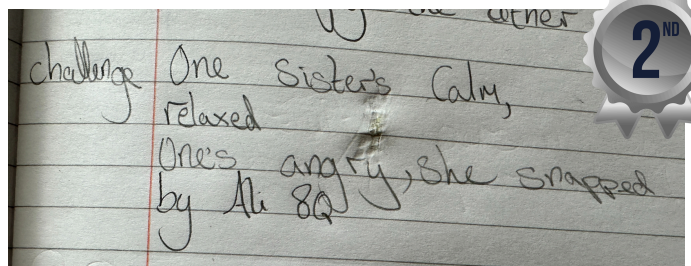 the other
2ND
challenge One Sister's Calm,
relaxed
One's angry, she snapped
by Ali 8Q